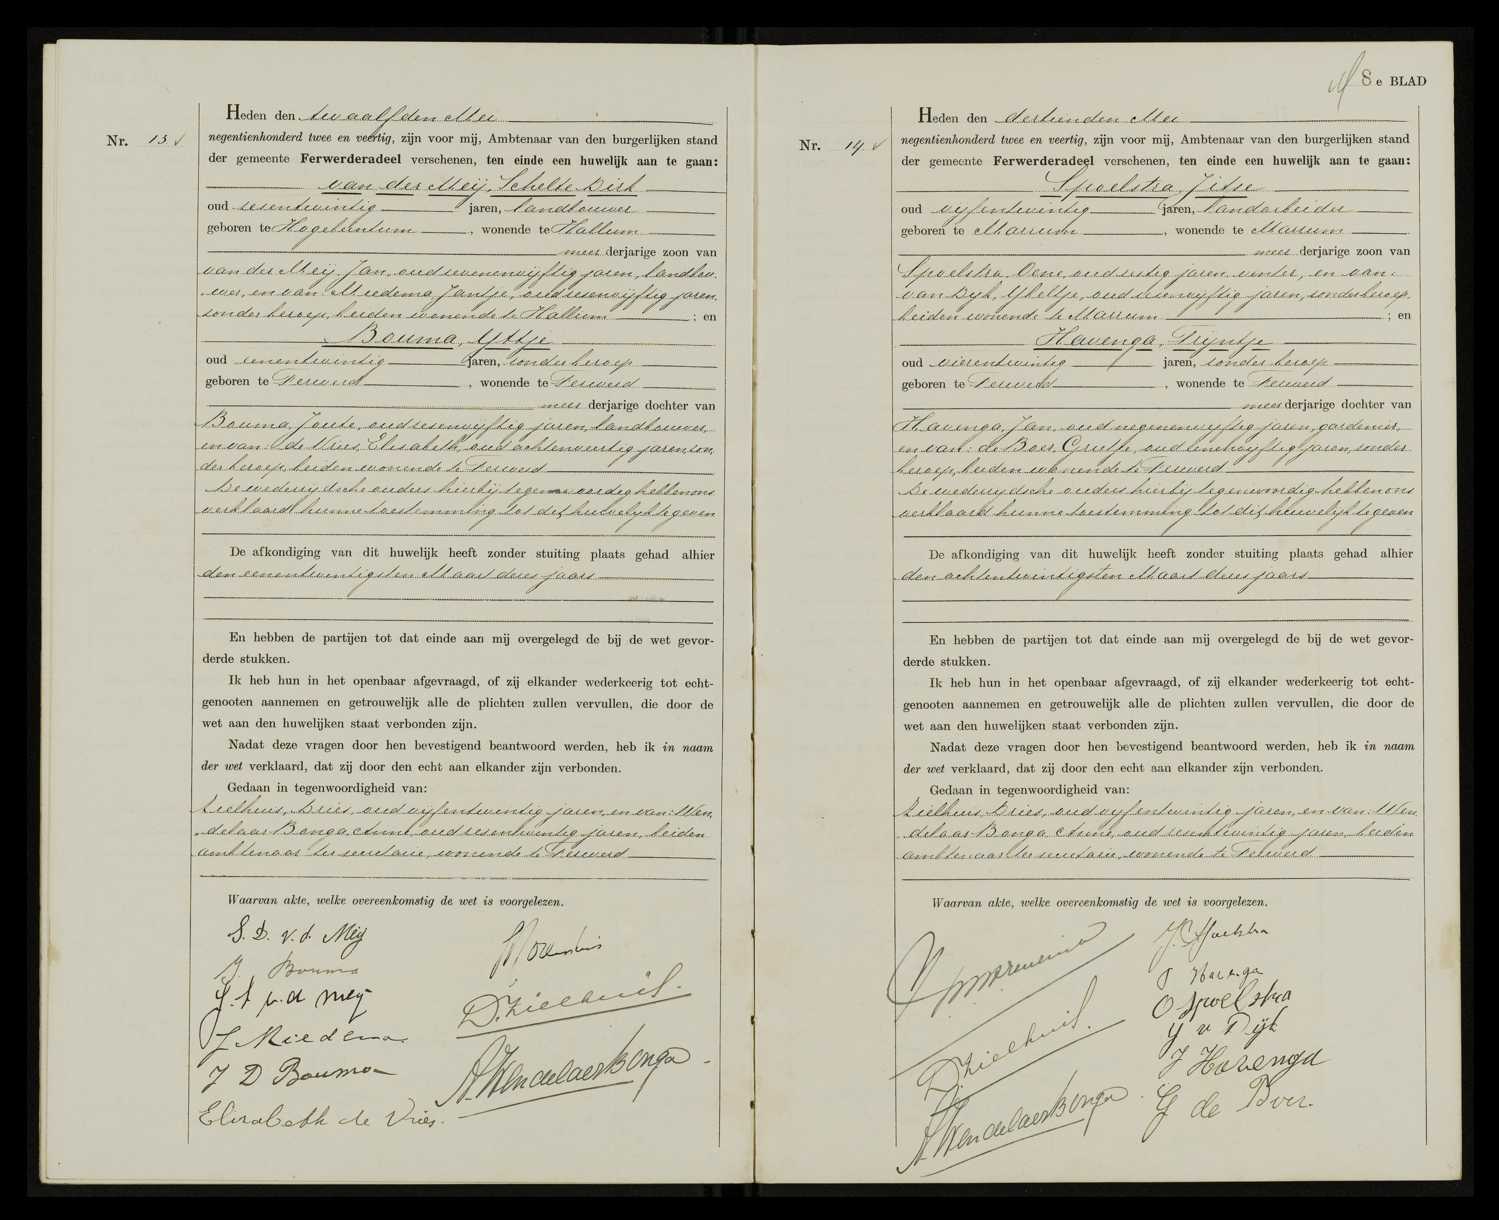 Heden den twaalfden Mei
Nr. 13
negentienhonderd twee en veertig, zijn voor mij, Ambtenaar van den burgerlijken stand
der gemeente Ferwerderadeel verschenen, ten einde een huwelijk aan te gaan:
van der Meij, Schelte Dirk
oud zesentwintig jaren, landbouwer
geboren te Hogebeintum, wonende te Hallum
meerderjarige zoon van
van der Meij, Jan, oud zevenenvijftig jaren, landbou-
wer, en van Miedema, Jantje, oud zesenvijftig jaren,
zonder beroep, beiden wonende te Hallum ; en
Bouma, Yttje
oud eenentwintig jaren, zonder beroep
geboren te Ferwerd, wonende te Ferwerd
meerderjarige dochter van
Bouma, Joute, oud zesenvijftig jaren, landbouwer,
en van: de Vries, Elisabeth, oud achtenveertig jaren, zon-
der beroep, beiden wonende te Ferwerd
De wederzijdsche ouders hierbij tegenwoordig hebben ons
verklaard hunne toestemming tot dit huwelijk te geven
De afkondiging van dit huwelijk heeft zonder stuiting plaats gehad alhier
den eenentwintigsten Maart dezes jaars
En hebben de partijen tot dat einde aan mij overgelegd de bij de wet gevor-
derde stukken.
Ik heb hun in het openbaar afgevraagd, of zij elkander wederkeerig tot echt-
genooten aannemen en getrouwelijk alle de plichten zullen vervullen, die door de
wet aan den huwelijken staat verbonden zijn.
Nadat deze vragen door hen bevestigend beantwoord werden, heb ik in naam
der wet verklaard, dat zij door den echt aan elkander zijn verbonden.
Gedaan in tegenwoordigheid van:
Zielhuis, Dries, oud vijfentwintig jaren, en van: Wen-
delaar Bonga, Anne, oud zesentwintig jaren, beiden
ambtenaar ter secretarie, wonende te Ferwerd
Waarvan akte, welke overeenkomstig de wet is voorgelezen.
S. D. v. d. Meij
Y. Bouma
J. v. d. Meij
J Miedema
J D Bouma
Elisabeth de Vries.
D. Zielhuis.
A. Wendelaar Bonga
8e BLAD
Heden den dertienden Mei
Nr. 14
negentienhonderd twee en veertig, zijn voor mij, Ambtenaar van den burgerlijken stand
der gemeente Ferwerderadeel verschenen, ten einde een huwelijk aan te gaan:
Spoelstra, Jitse
oud vijfentwintig jaren, landarbeider
geboren te Marrum, wonende te Marrum
meerderjarige zoon van
Spoelstra, Oene, oud zestig jaren, venter, en van:
van Dijk, Ybeltje, oud zesenvijftig jaren, zonder beroep,
beiden wonende te Marrum ; en
Havenga, Trijntje
oud vierentwintig jaren, zonder beroep
geboren te Ferwerd, wonende te Ferwerd
meerderjarige dochter van
Havenga, Jan, oud negenenvijftig jaren, gardenier,
en van: de Boer, Grietje, oud eenenvijftig jaren, zonder
beroep, beiden wonende te Ferwerd
De wederzijdsche ouders hierbij tegenwoordig hebben ons
verklaard hunne toestemming tot dit huwelijk te geven
De afkondiging van dit huwelijk heeft zonder stuiting plaats gehad alhier
den achtentwintigsten Maart dezes jaars
En hebben de partijen tot dat einde aan mij overgelegd de bij de wet gevor-
derde stukken.
Ik heb hun in het openbaar afgevraagd, of zij elkander wederkeerig tot echt-
genooten aannemen en getrouwelijk alle de plichten zullen vervullen, die door de
wet aan den huwelijken staat verbonden zijn.
Nadat deze vragen door hen bevestigend beantwoord werden, heb ik in naam
der wet verklaard, dat zij door den echt aan elkander zijn verbonden.
Gedaan in tegenwoordigheid van:
Zielhuis, Dries, oud vijfentwintig jaren, en van: Wen-
delaar Bonga, Anne, oud zesentwintig jaren, beiden
ambtenaar ter secretarie, wonende te Ferwerd
Waarvan akte, welke overeenkomstig de wet is voorgelezen.
J. Spoelstra
T Havenga
O Spoelstra
Y v Dijk
J Havenga
G de Boer.
D. Zielhuis.
A Wendelaar Bonga